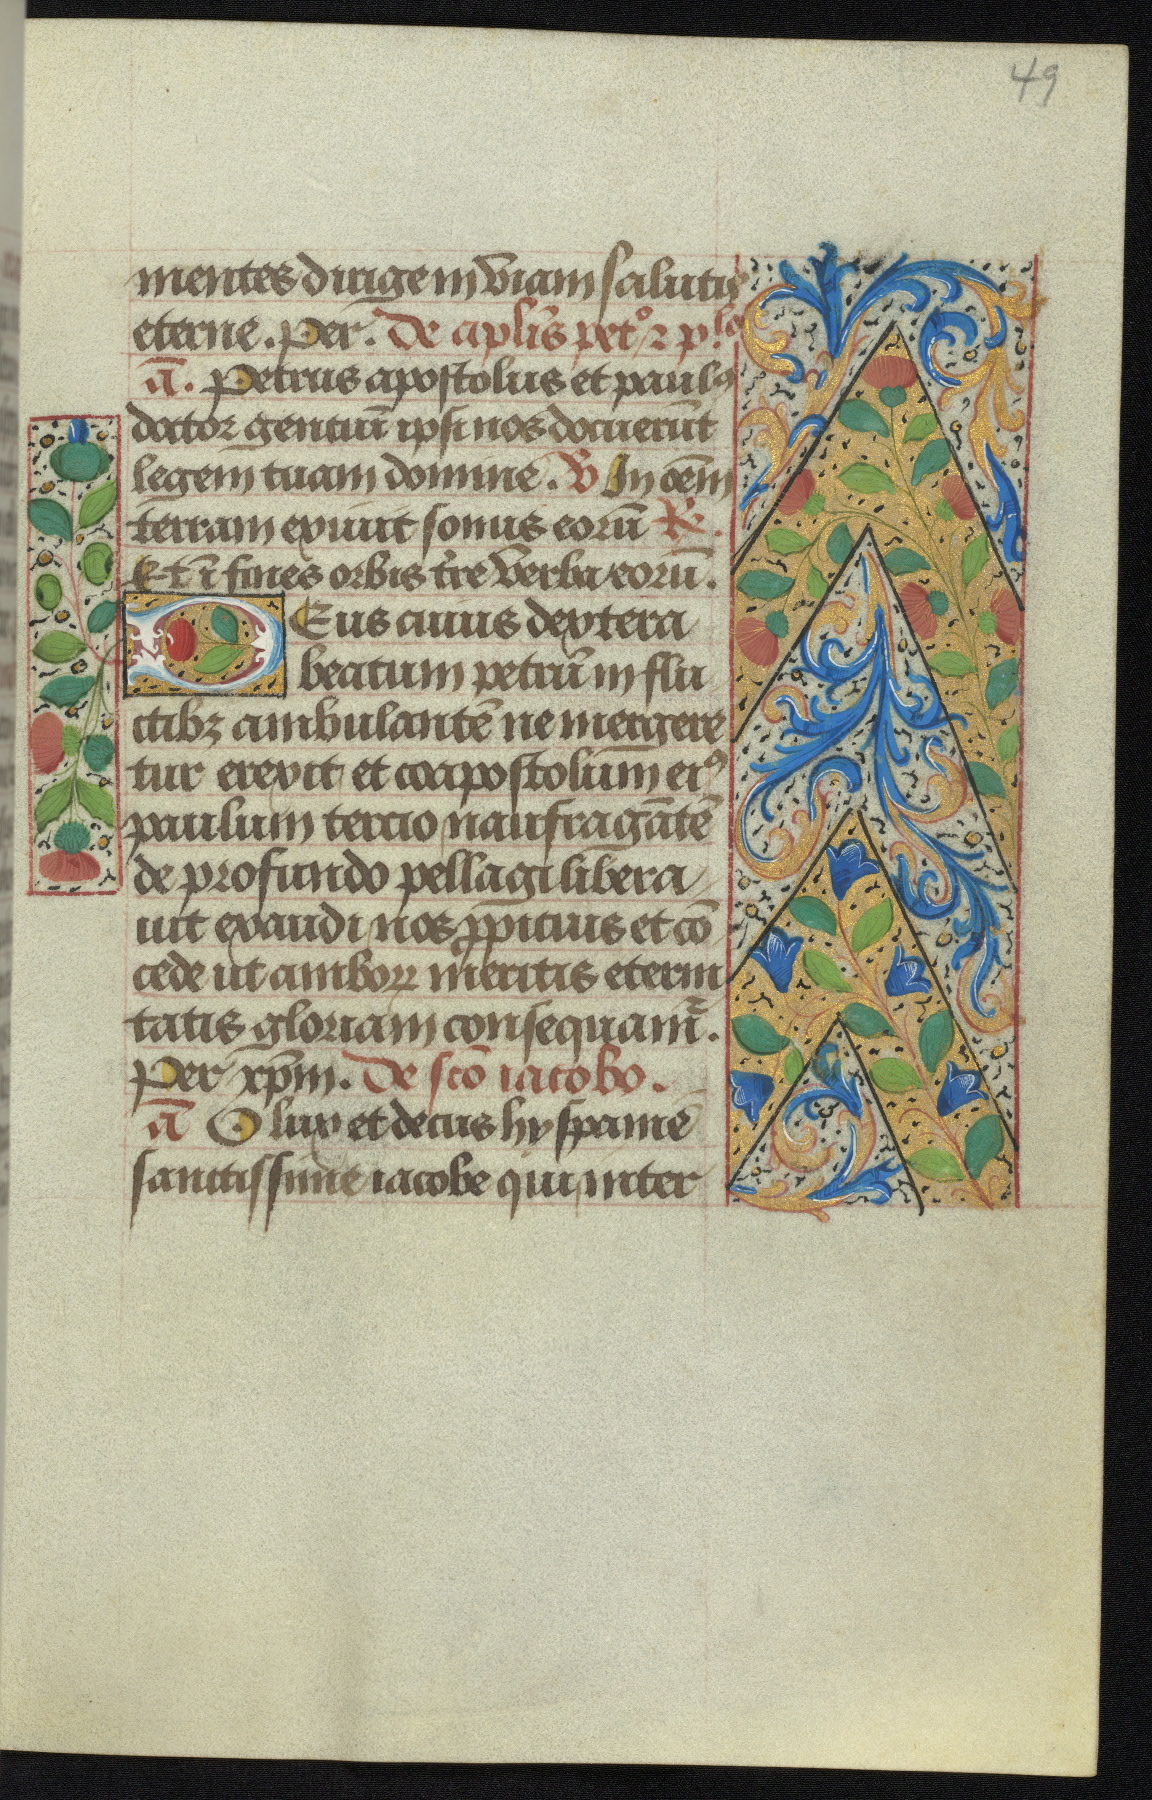 49
mentes dirige in viam salutis
eterne. Per. De aplis̄ petº ⁊ plo
a̅. Petrus apostolus et paulꝰ
doctor gentiū ipsi nos docuerūt
legem tuam domine. V In oēm
terram exiuit sonus eorū R.
Et ī fines orbis tr̄e verba eorū.
Deus cuius dextera
beatum petrū in flu
ctibꝫ ambulantē ne mergere
tur erexit et coapostolum eiꝰ
paulum tercio naufragātē
de profundo pellagi libera
uit exaudi nos ꝓpitius et cō
cede ut amboꝝ meritis eterni
tatis gloriam consequamr̄.
Per xp̄m. De scō iacobo.
a̅ O lux et decus hyspanie
sanctissime iacobe qui inter